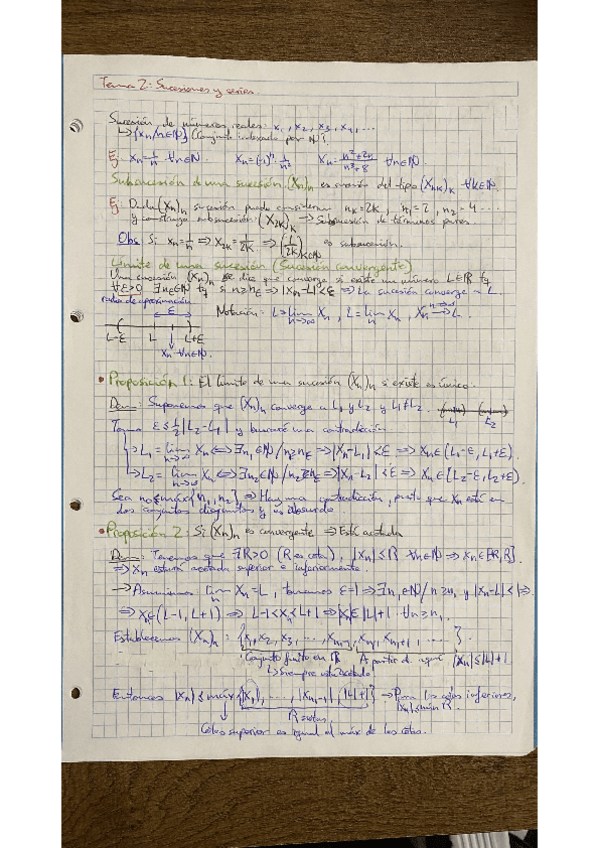 Tema 2: Sucesiones y series.
Sucesión de números reales: x₁, x₂, x₃, x₄, ...
↳{xₙ/n∈ℕ} (Conjunto indexado por ℕ).
Ej: xₙ=1/n ∀n∈ℕ. xₙ=(-1)ⁿ 1/n² xₙ= (n²+2n)/(n³+8) ∀n∈ℕ.
Subsucesión de una sucesión (xₙ)ₙ es sucesión del tipo (x_{n_k})_k ∀k∈ℕ.
Ej: Dada (xₙ)ₙ sucesión puedo considerar n_k=2k, n₁=2, n₂=4 ...
y construyo subsucesión (x_{2k})_k → Subsucesión de términos pares.
Obs: Si xₙ=1/n ⇒ x_{2k}=1/2k ⇒ (1/2k)_{k∈ℕ} es subsucesión.
Límite de una sucesión (Sucesión convergente)
Una sucesión (xₙ)ₙ se dice que converge si existe un número L∈ℝ tq
∀ε>0 ∃n_ε∈ℕ tq si n≥n_ε ⇒ |xₙ-L|<ε ⇒ La sucesión converge a L.
radio de aproximación
ε
L-ε L L+ε
xₙ ∀n∈ℕ
Notación: L= lim_{n→∞} xₙ, L= lim_n xₙ, xₙ →^{n→∞} L.
• Proposición 1: El límite de una sucesión (xₙ)ₙ si existe es único.
Dem: Suponemos que (xₙ)ₙ converge a L₁ y L₂ y L₁≠L₂.
Tomo ε≤½|L₂-L₁| y buscaré una contradicción.
↳L₁= lim_{n→∞} xₙ ⇔ ∃n₁∈ℕ/n≥n_ε ⇒ |xₙ-L₁|<ε ⇒ xₙ∈(L₁-ε, L₁+ε).
↳L₂= lim_{n→∞} xₙ ⇔ ∃n₂∈ℕ/n≥n_ε ⇒ |xₙ-L₂|<ε ⇒ xₙ∈(L₂-ε, L₂+ε).
Sea n₀=máx{n₁, n₂} ⇒ Hay una contradicción, puesto que xₙ está en
dos conjuntos disjuntos y es absurdo
• Proposición 2: Si (xₙ)ₙ es convergente ⇒ Está acotada
Dem: Tenemos que ∃R>0 (R es cota), |xₙ|≤R ∀n∈ℕ ⇒ xₙ∈[-R, R]
⇒ xₙ estará acotada superior e inferiormente.
→ Asumimos lim_n xₙ=L, tenemos ε=1 ⇒ ∃n₁∈ℕ/n≥n₁ y |xₙ-L|<1 ⇒
⇒ xₙ∈(L-1, L+1) ⇒ L-1<xₙ<L+1 ⇒ |xₙ|≤|L|+1 ∀n≥n₁.
Establecemos (xₙ)ₙ: {x₁, x₂, x₃, ..., x_{n₁-1}, x_{n₁}, x_{n₁+1}, ...}.
Conjunto finito en ℝ A partir de aquí |xₙ|≤|L|+1
↳ Siempre está acotado
Entonces |xₙ|≤máx{|x₁|, ..., |x_{n₁-1}|, |L|+1} → Para las cotas inferiores,
R cotas.
Cota superior es igual al máx de las cotas.